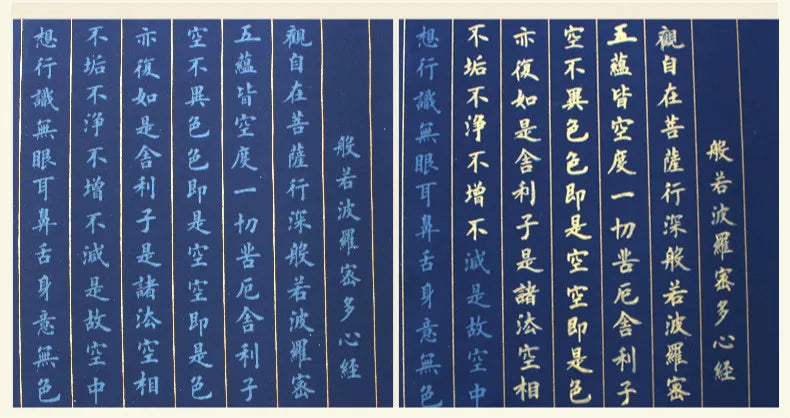 般若波羅密多心經
觀自在菩薩行深般若波羅密
五蘊皆空度一切苦厄舍利子
空不異色色即是空空即是色
亦復如是舍利子是諸法空相
不垢不淨不增不減是故空中
想行識無眼耳鼻舌身意無色
般若波羅密多心經
觀自在菩薩行深般若波羅密
五蘊皆空度一切苦厄舍利子
空不異色色即是空空即是色
亦復如是舍利子是諸法空相
不垢不淨不增不減是故空中
想行識無眼耳鼻舌身意無色